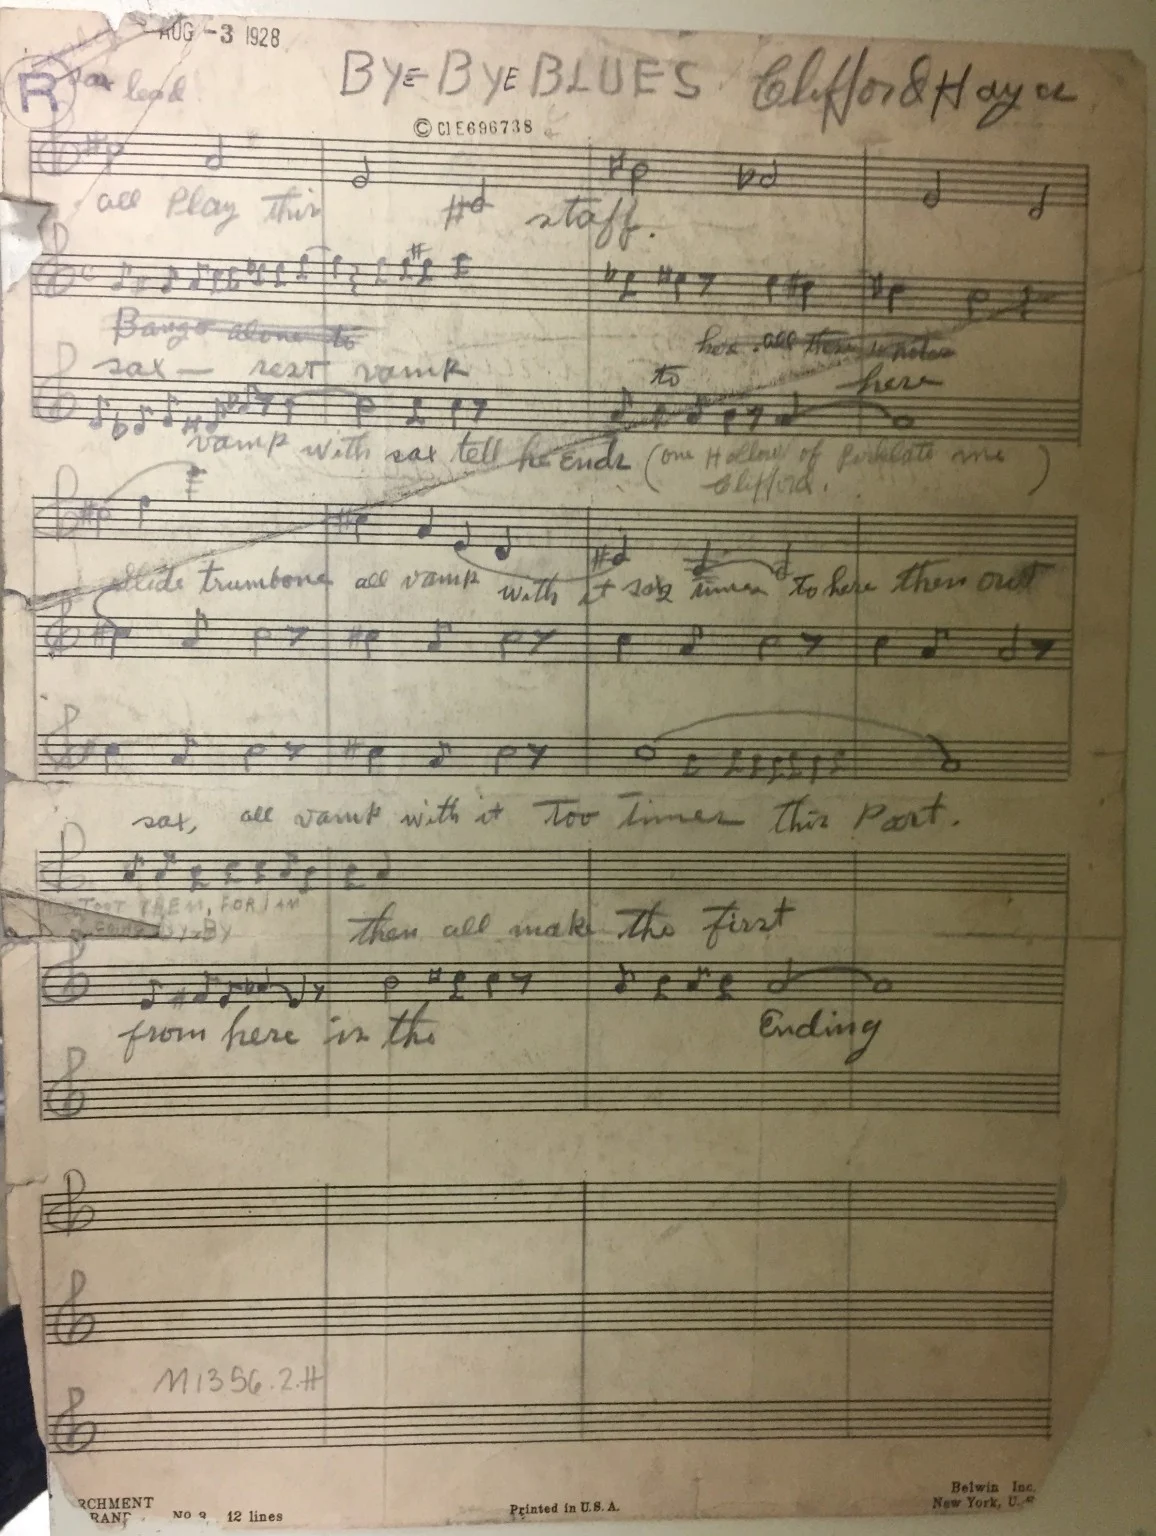 AUG -3 1928
BYE-BYE BLUES Clifford Hayes
R sax lead
© CI E696738
all Play this staff.
Bango alone to
here all these notes
sax — rest vamp to here
vamp with sax tell he Ends (one Hollow of me
Clifford. )
Slide trumbone all vamp with it times to here then out
sax, all vamp with it Too Times this Part.
TOOT THEM, FOR I AM
GOING BY-BY
then all make the first
from here is the Ending
M1356.2.H
RCHMENT
RAND No 12 lines
Printed in U.S.A.
Belwin Inc.
New York, U.S.